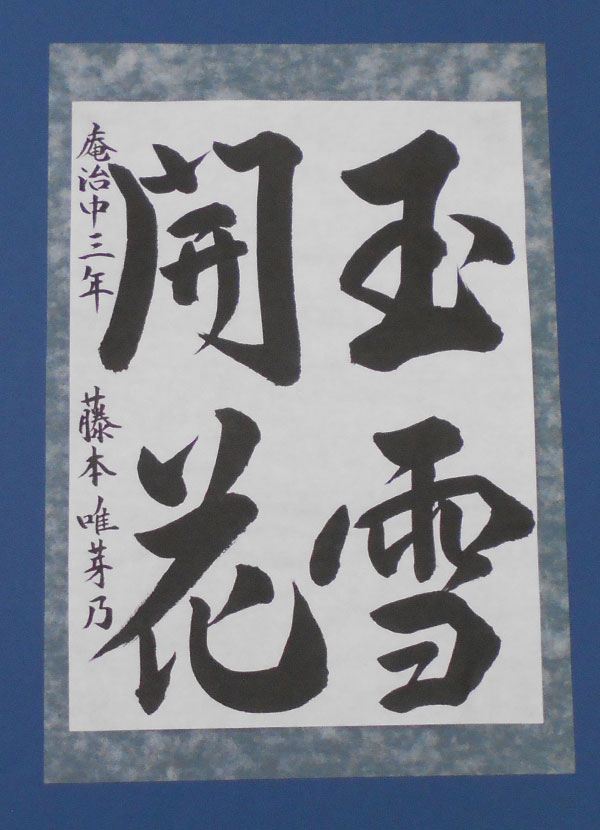 玉雪
開花
庵治中三年 藤本唯芽乃